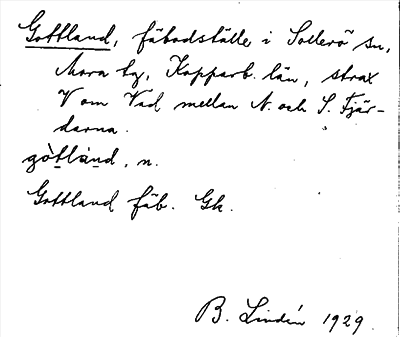 Gottland, fäbodställe i Sollerö sn,
Mora tg, Kopparb. län, strax
V om Vad mellan N. och S. Fjär-
darna.
gòtlànd, n.
Gottland fäb. Gk.
B. Lindén 1929